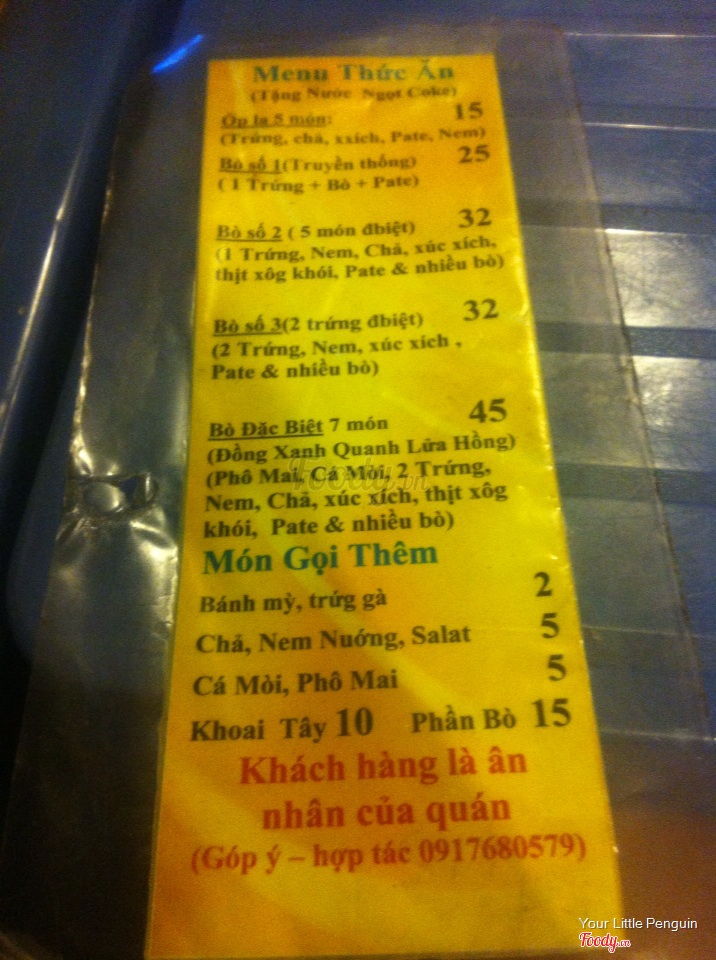 Menu Thức Ăn
(Tặng Nước Ngọt Coke)
Ốp la 5 món: 15
(Trứng, chả, xxích, Pate, Nem)
Bò số 1(Truyền thống) 25
( 1 Trứng + Bò + Pate)
Bò số 2 ( 5 món đbiệt) 32
(1 Trứng, Nem, Chả, xúc xích,
thịt xôg khói, Pate & nhiều bò)
Bò số 3(2 trứng đbiệt) 32
(2 Trứng, Nem, xúc xích ,
Pate & nhiều bò)
Bò Đặc Biệt 7 món 45
(Đồng Xanh Quanh Lửa Hồng)
(Phô Mai, Cá Mòi, 2 Trứng,
Nem, Chả, xúc xích, thịt xôg
khói, Pate & nhiều bò)
Món Gọi Thêm
Bánh mỳ, trứg gà 2
Chả, Nem Nướng, Salat 5
Cá Mòi, Phô Mai 5
Khoai Tây 10 Phần Bò 15
Khách hàng là ân
nhân của quán
(Góp ý – hợp tác 0917680579)
Foody.vn
Your Little Penguin
Foody.vn